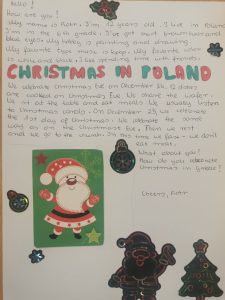 Hello!
How are you?
My name is Piotr. I'm 12 years old. I live in Poland
I'm in the 6th grade. I've got short brown hair and
blue eyes. My hobby is painting and drawing.
My favorite type music is k-pop. My favorite color
is white & black. I like spending time with friends.
CHRISTMAS IN POLAND
We celebrate Christmas Eve on December 24. 12 dishes
are cooked on Christmas Eve. We share the wafer.
We sit at the table and eat meals. We usually listen
to Christmas carols. On December 25, we celebrate
the 1st day of Christmas. We celebrate the same
way as on the Christmas Eve. Then we rest
and we go to the church. In this time we fast - we don't
eat meat.
What about you?
How do you celebrate
Christmas in Greece?
Cheers, Piotr